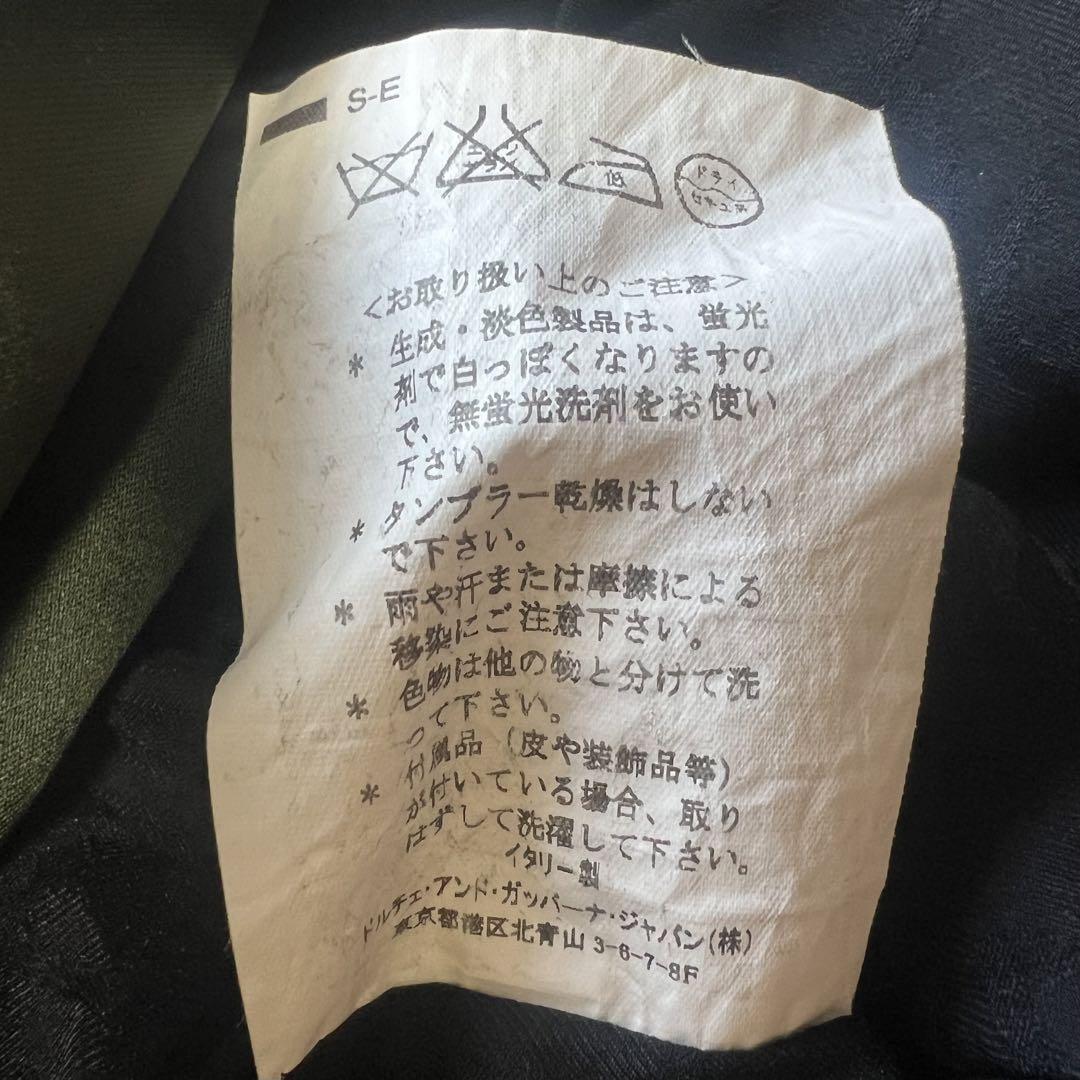 S-E
エンソ
サラシ
低
ドライ
セキユ系
<お取り扱い上のご注意>
* 生成・淡色製品は、蛍光
剤で白っぽくなりますの
で、無蛍光洗剤をお使い
下さい。
* タンブラー乾燥はしない
で下さい。
* 雨や汗または摩擦による
移染にご注意下さい。
* 色物は他の物と分けて洗
って下さい。
* 付属品(皮や装飾品等)
が付いている場合、取り
はずして洗濯して下さい。
イタリー製
ドルチェ・アンド・ガッバーナ・ジャパン(株)
東京都港区北青山3-6-7-8F